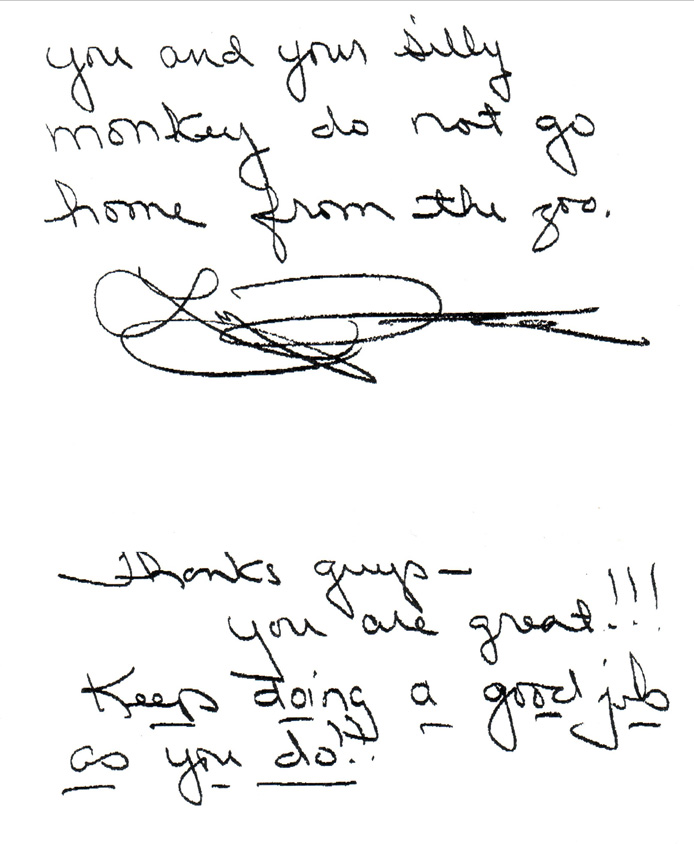 you and your silly
monkey do not go
home from the zoo.
Thanks guys—
you are great!!!
Keep doing a good job
as you do!!